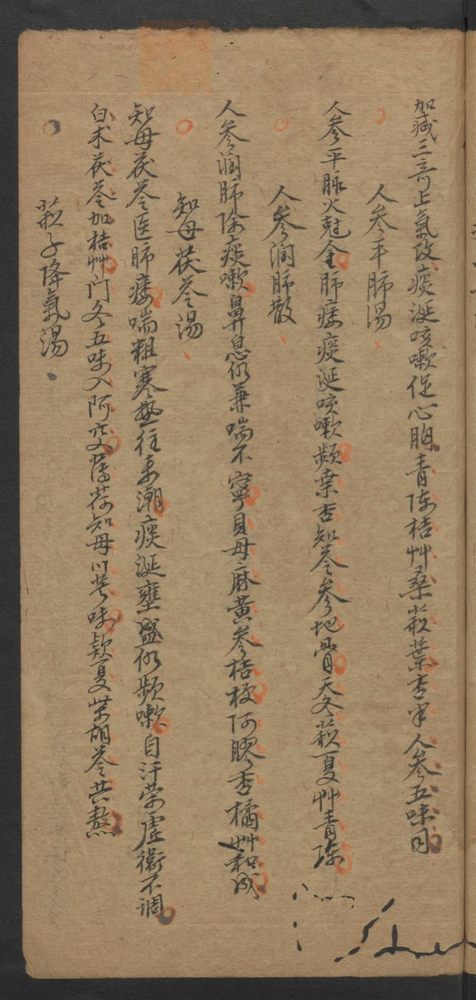 加减三奇止氣攻痰涎咳嗽促心胸青陈桔艸桑蘇葉杏半人參五味同
人參平肺湯
人參平脉火尅金肺痿痰涎咳嗽频桑杏知苓參地骨天冬蘇夏艸青陈
人參润肺散
人參润肺除痰嗽鼻息仍兼喘不寧貝母麻黄參桔梗阿膠杏橘艸和成
知母茯苓湯
知母茯苓医肺痿喘粗寒熱往来潮痰涎壅盛仍频嗽自汗荣虚衛不調
白术茯苓加桔艸门冬五味入阿交薄荷知母川芎味款夏柴胡苓共熬
蘇子降氣湯